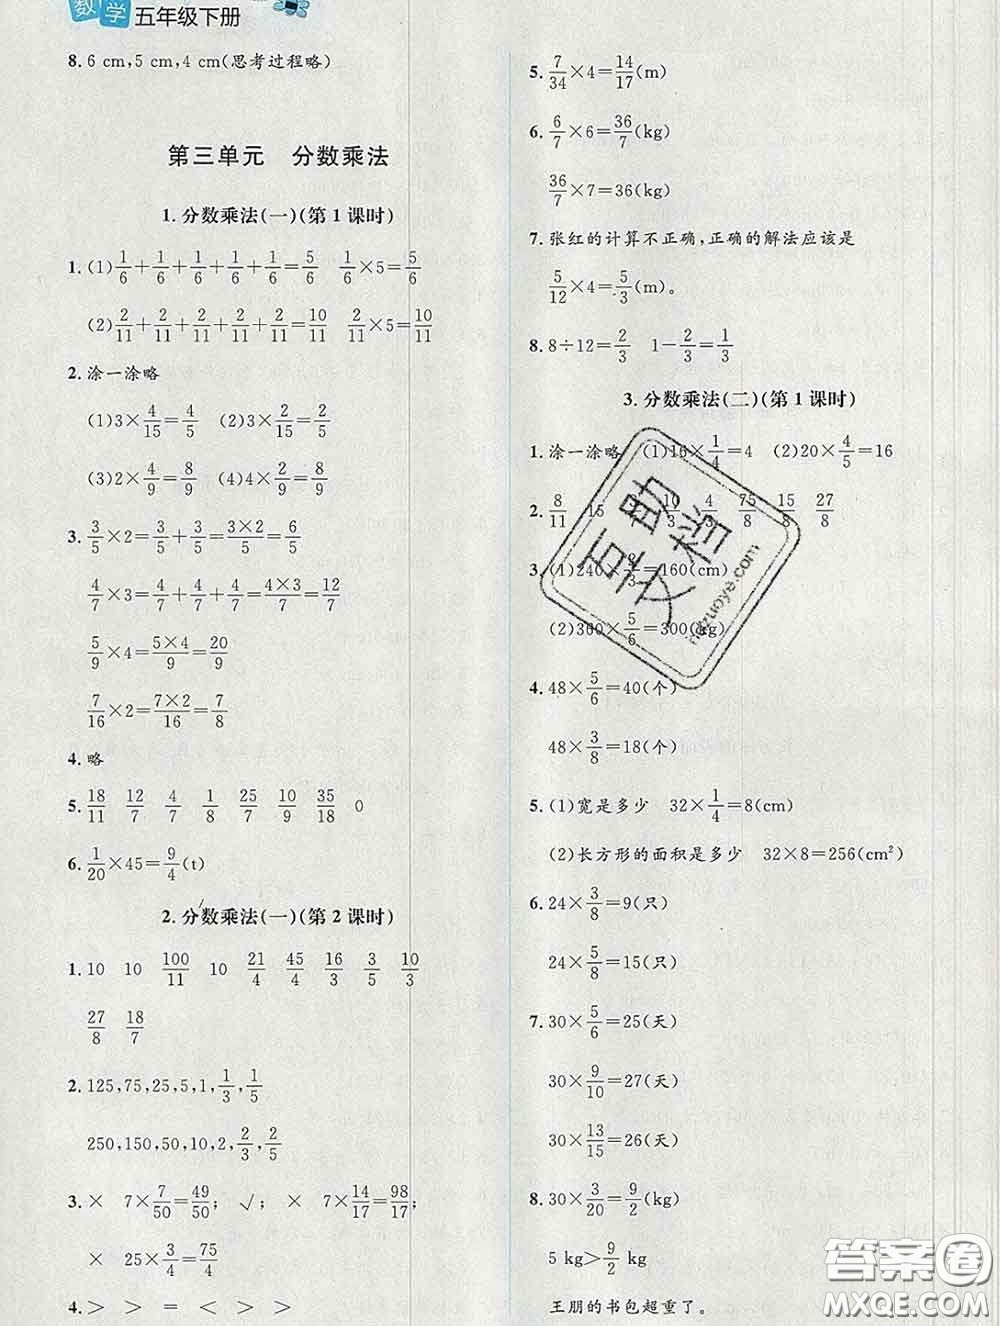 数学 五年级下册
8. 6 cm,5 cm,4 cm(思考过程略)
第三单元 分数乘法
1. 分数乘法(一)(第1课时)
1. (1) 1/6+1/6+1/6+1/6+1/6=5/6 1/6×5=5/6
(2) 2/11+2/11+2/11+2/11+2/11=10/11 2/11×5=10/11
2. 涂一涂略
(1)3×4/15=4/5 (2)3×2/15=2/5
(3)2×4/9=8/9 (4)4×2/9=8/9
3. 3/5×2=3/5+3/5=(3×2)/5=6/5
4/7×3=4/7+4/7+4/7=(4×3)/7=12/7
5/9×4=(5×4)/9=20/9
7/16×2=(7×2)/16=7/8
4. 略
5. 18/11 12/7 4/7 1/8 25/7 10/9 35/18 0
6. 1/20×45=9/4(t)
2. 分数乘法(一)(第2课时)
1. 10 10 100/11 10 21/4 45/4 16/3 3/5 10/3
27/8 18/7
2. 125,75,25,5,1,1/3,1/5
250,150,50,10,2,2/3,2/5
3. × 7×7/50=49/50; √; × 7×14/17=98/17;
× 25×3/4=75/4
4. > > = < > >
5. 7/34×4=14/17(m)
6. 6/7×6=36/7(kg)
36/7×7=36(kg)
7. 张红的计算不正确,正确的解法应该是
5/12×4=5/3(m)。
8. 8÷12=2/3 1-2/3=1/3
3. 分数乘法(二)(第1课时)
1. 涂一涂略 (1)16×1/4=4 (2)20×4/5=16
2. 8/11 15 10/3 4/3 75/8 15/8 27/8
3. (1)240× =160(cm)
(2)360×5/6=300(kg)
4. 48×5/6=40(个)
48×3/8=18(个)
5. (1)宽是多少 32×1/4=8(cm)
(2)长方形的面积是多少 32×8=256(cm²)
6. 24×3/8=9(只)
24×5/8=15(只)
7. 30×5/6=25(天)
30×9/10=27(天)
30×13/15=26(天)
8. 30×3/20=9/2(kg)
5 kg>9/2 kg
王朋的书包超重了。
百助文档
答案圈
MXQE.COM